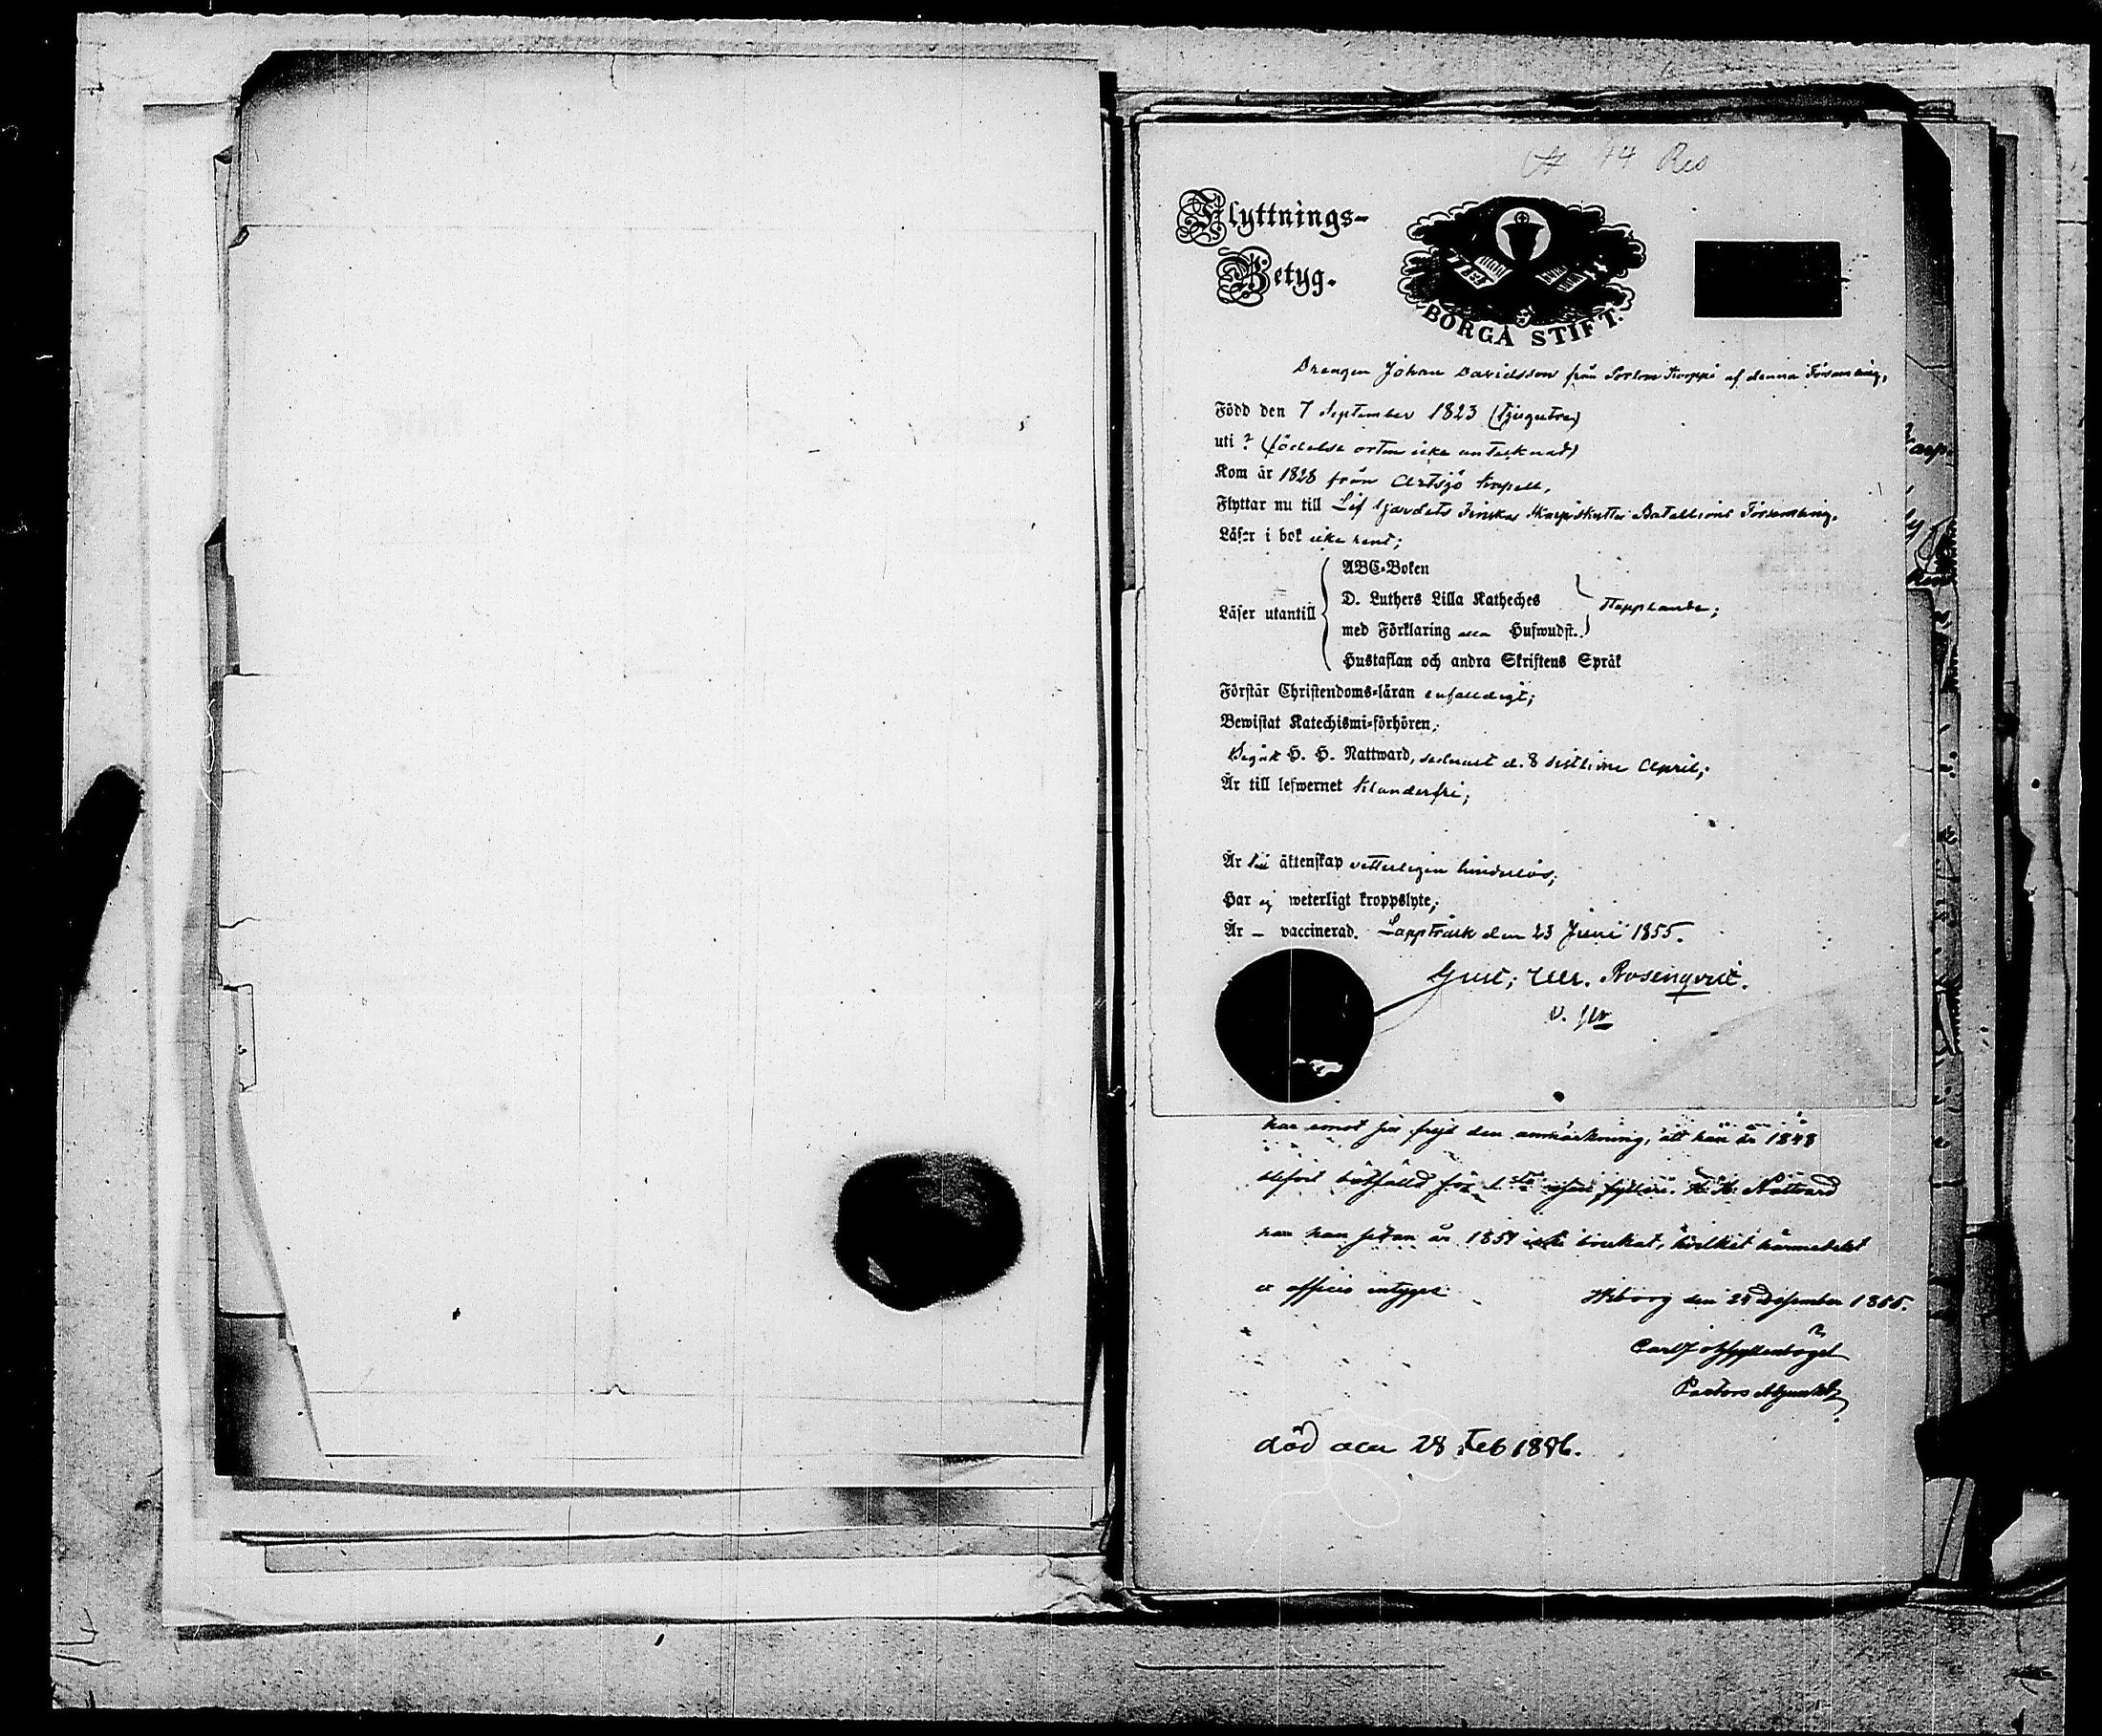 44 Res
Flyttnings-
Betyg.
BORGÅ STIFT.
Drengen Johan Davidsson från Porlom Skoppi af denna Församling,
Född den 7 September 1823 (tjugutre)
uti ? (födelse orten icke antecknad)
Kom år 1828 från Artsjö Kapell,
Flyttar nu till Lif Gardets Finska Skarpskytte Bataillons Församling.
Läser i bok icke rent;
Läser utantill
ABC-Boken
D. Luthers Lilla Katheches
med Förklaring alla Hufwudst.
Hustaflan och andra Skriftens Språk
Förstår Christendoms-läran enfalldigt;
Bewistat Katechismi-förhören;
Begått H. H. Nattward, sednast d. 8 sistlidne April;
Är till lefwernet klanderfri;
Är till äktenskap vetterligen hinderlös;
Har ej weterligt kroppslyte;
Är — vaccinerad. Lappträsk den 23 Juni 1855.
Gust; Rosenqvist.
har emot sin frejd den anmärkning, att han år 1848
blifvit bötfälld för 1sta resan fylleri. H. H. Nattvard
har han sedan år 1851 icke brukat, hvilket härmedelst
ex officio intygar. Wiborg den 24 December 1855.
Pastors Adjunkt
död den 28 Feb 1886.